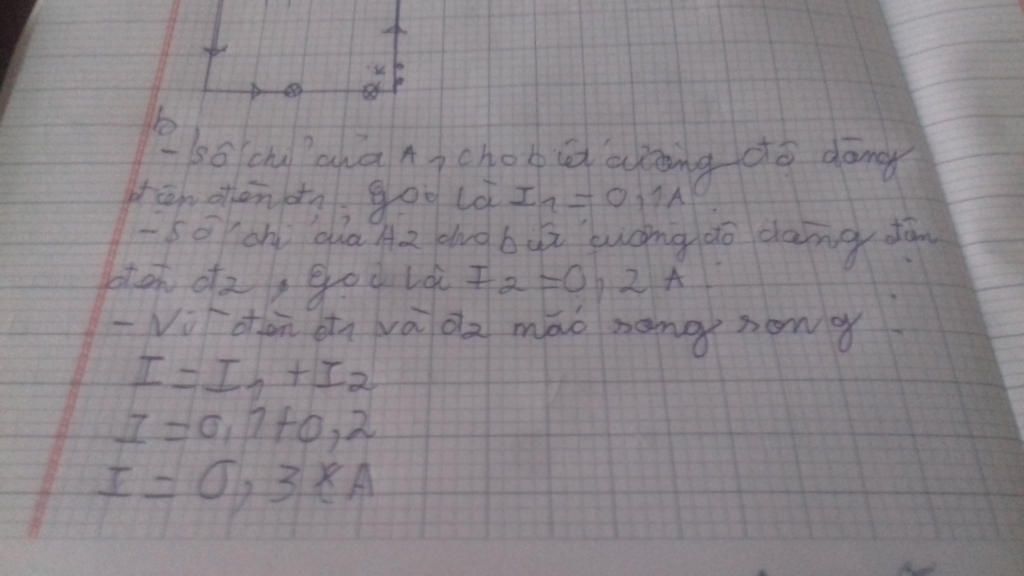 b
- Số chỉ của A1 cho biết cường độ dòng
điện đèn đ1, gọi là I1 = 0,1A
- Số chỉ của A2 cho biết cường độ dòng điện
đèn đ2, gọi là I2 = 0,2 A
- Vì đèn đ1 và đ2 mắc song song
I = I1 + I2
I = 0,1+0,2
I = 0,3 A